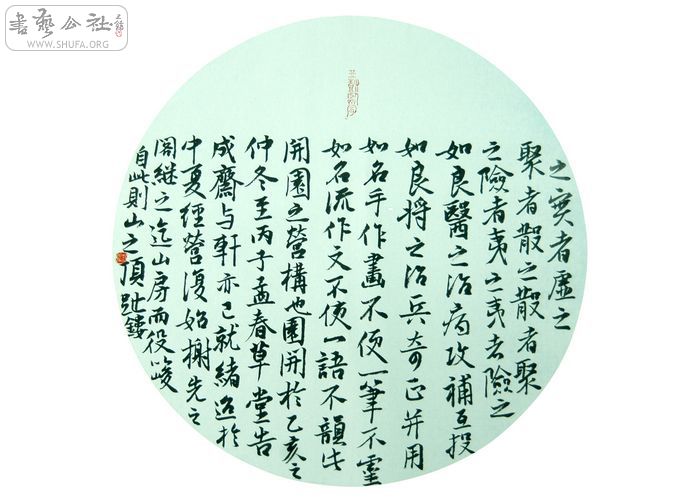 書藝公社
WWW.SHUFA.ORG
之實者虛之
聚者散之散者聚
之險者夷之夷者險之
如良醫之治病攻補互投
如良將之治兵奇正并用
如名手作畫不使一筆不靈
如名流作文不使一語不韻此
開園之營構也園開於乙亥之
仲冬至丙子孟春草堂告
成齋与軒亦已就緒迨於
中夏經營復始榭先之
閣繼之迄山房而役竣
自此則山之頂趾鏤